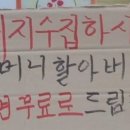 지수집하시
머니할아버
무료로 드림